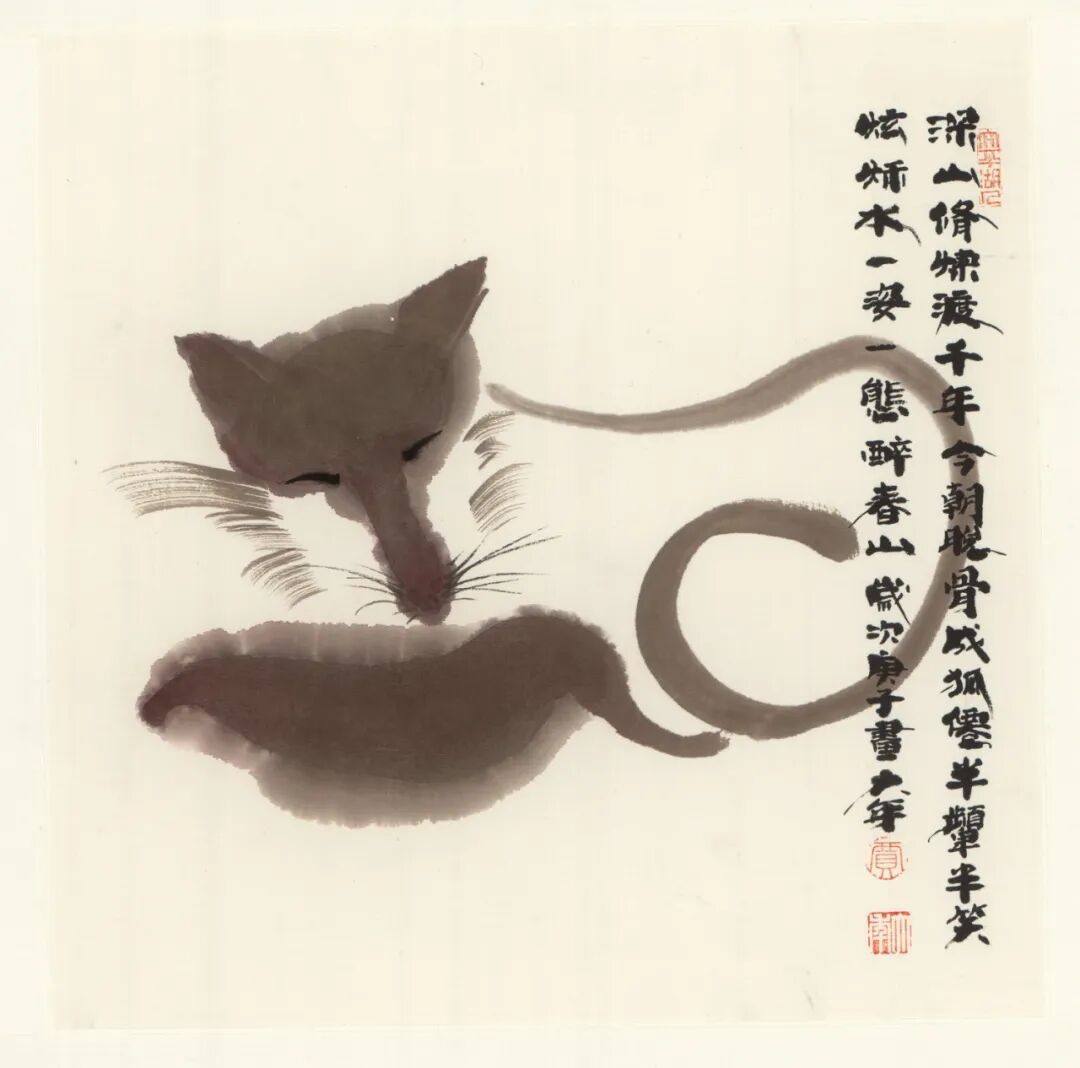 深山脩煉渡千年今朝脱骨成狐僊半顰半笑
炫秌水一姿一態醉春山歲次庚子畫大年
賈
大年